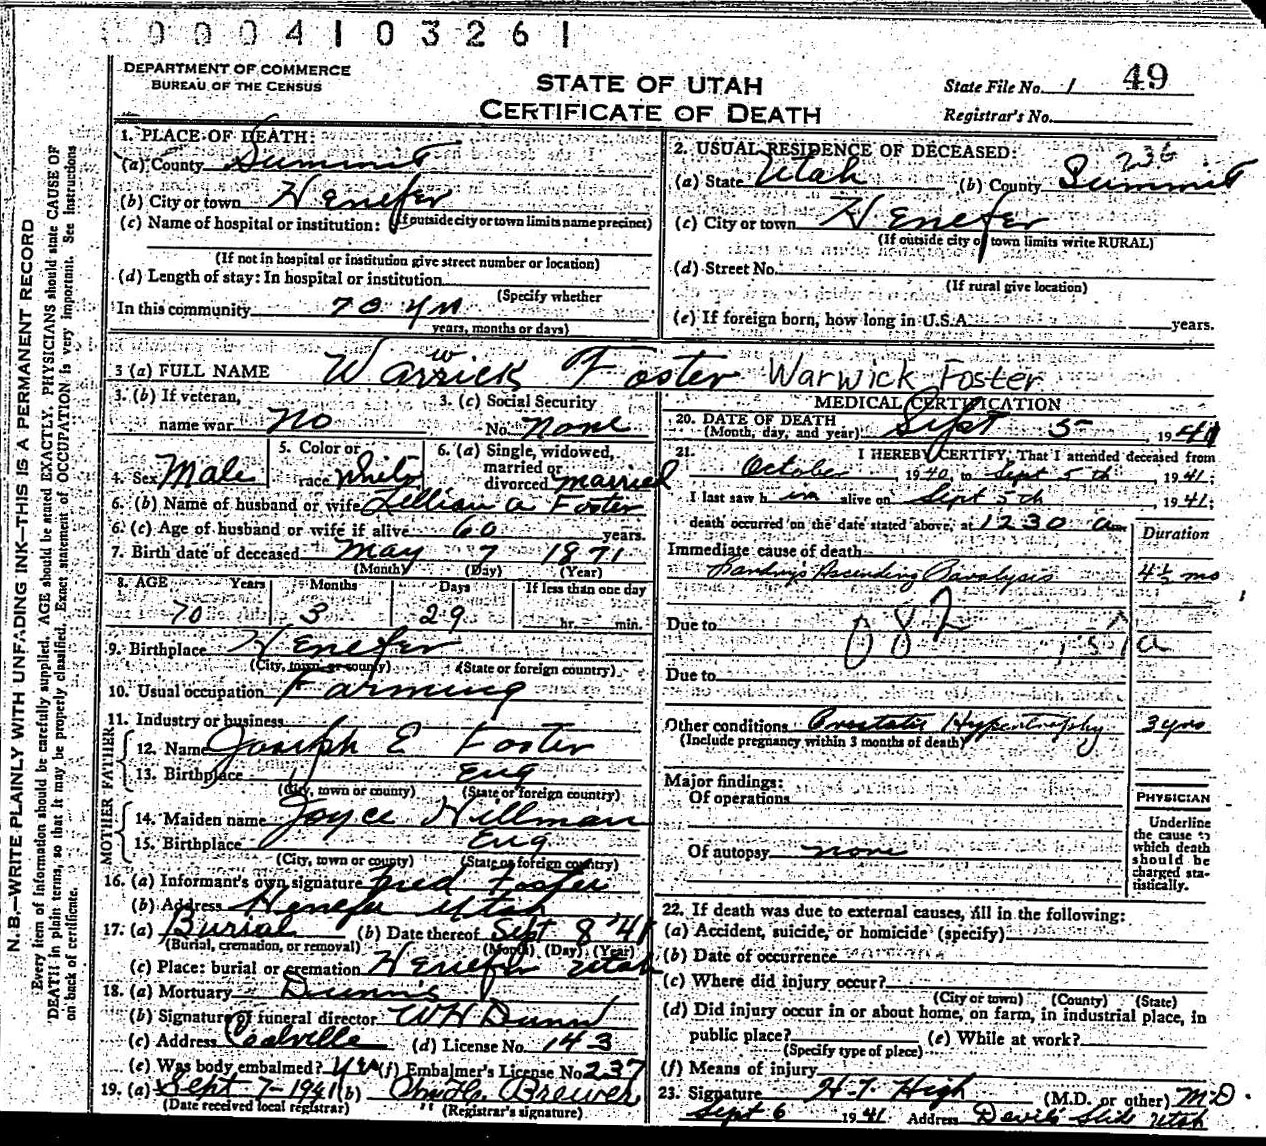 0004103261
DEPARTMENT OF COMMERCE
BUREAU OF THE CENSUS
STATE OF UTAH
CERTIFICATE OF DEATH
State File No. 1 49
Registrar's No.
N.B.—WRITE PLAINLY WITH UNFADING INK—THIS IS A PERMANENT RECORD
Every item of information should be carefully supplied. AGE should be stated EXACTLY. PHYSICIANS should state CAUSE OF
DEATH in plain terms, so that it may be properly classified. Exact statement of OCCUPATION is very important. See Instructions
on back of certificate.
1. PLACE OF DEATH:
(a) County Summit
(b) City or town Henefer
(If outside city or town limits name precinct)
(c) Name of hospital or institution:
(If not in hospital or institution give street number or location)
(d) Length of stay: In hospital or institution
(Specify whether
In this community 70 yrs
years, months or days)
2. USUAL RESIDENCE OF DECEASED:
236
(a) State Utah (b) County Summit
(c) City or town Henefer
(If outside city or town limits write RURAL)
(d) Street No.
(If rural give location)
(e) If foreign born, how long in U.S.A. years.
3 (a) FULL NAME Warrick Foster Warwick Foster
w
3. (b) If veteran, name war No
3. (c) Social Security No. None
4. Sex Male
5. Color or race White
6. (a) Single, widowed, married or divorced married
6. (b) Name of husband or wife Lillian A Foster
6. (c) Age of husband or wife if alive 60 years.
7. Birth date of deceased May 7 1871
(Month) (Day) (Year)
8. AGE Years Months Days If less than one day
70 3 29 hr. min.
9. Birthplace Henefer
(City, town, or county) (State or foreign country)
10. Usual occupation Farming
11. Industry or business
FATHER
12. Name Joseph E Foster
13. Birthplace Eng
(City, town or county) (State or foreign country)
MOTHER
14. Maiden name Joyce Hillman
15. Birthplace Eng
(City, town or county) (State or foreign country)
16. (a) Informant's own signature Fred Foster
(b) Address Henefer Utah
17. (a) Burial (b) Date thereof Sept 8 '41
(Burial, cremation, or removal) (Month) (Day) (Year)
(c) Place: burial or cremation Henefer Utah
18. (a) Mortuary Dunn's
(b) Signature of funeral director W H Dunn
(c) Address Coalville (d) License No. 143
(e) Was body embalmed? yes (f) Embalmer's License No. 237
19. (a) Sept 7-1941 (b) Wm H. Brewer
(Date received local registrar) (Registrar's signature)
MEDICAL CERTIFICATION
20. DATE OF DEATH
(Month, day, and year) Sept 5 , 1941
21. I HEREBY CERTIFY, That I attended deceased from
October 1940 to Sept 5th , 1941;
I last saw h im alive on Sept 5th , 1941;
death occurred on the date stated above, at 1230 a m.
Duration
Immediate cause of death
Landry's Ascending Paralysis 4½ mo
Due to 082
Due to
Other conditions Prostatic Hypertrophy 3 yrs
(Include pregnancy within 3 months of death)
Major findings:
Of operations
Of autopsy none
PHYSICIAN
Underline
the cause to
which death
should be
charged sta-
tistically.
22. If death was due to external causes, fill in the following:
(a) Accident, suicide, or homicide (specify)
(b) Date of occurrence
(c) Where did injury occur?
(City or town) (County) (State)
(d) Did injury occur in or about home, on farm, in industrial place, in
public place? (e) While at work?
(Specify type of place)
(f) Means of injury
23. Signature H. T. High (M.D. or other) M.D.
Sept 6 1941 Address Devils Slide Utah